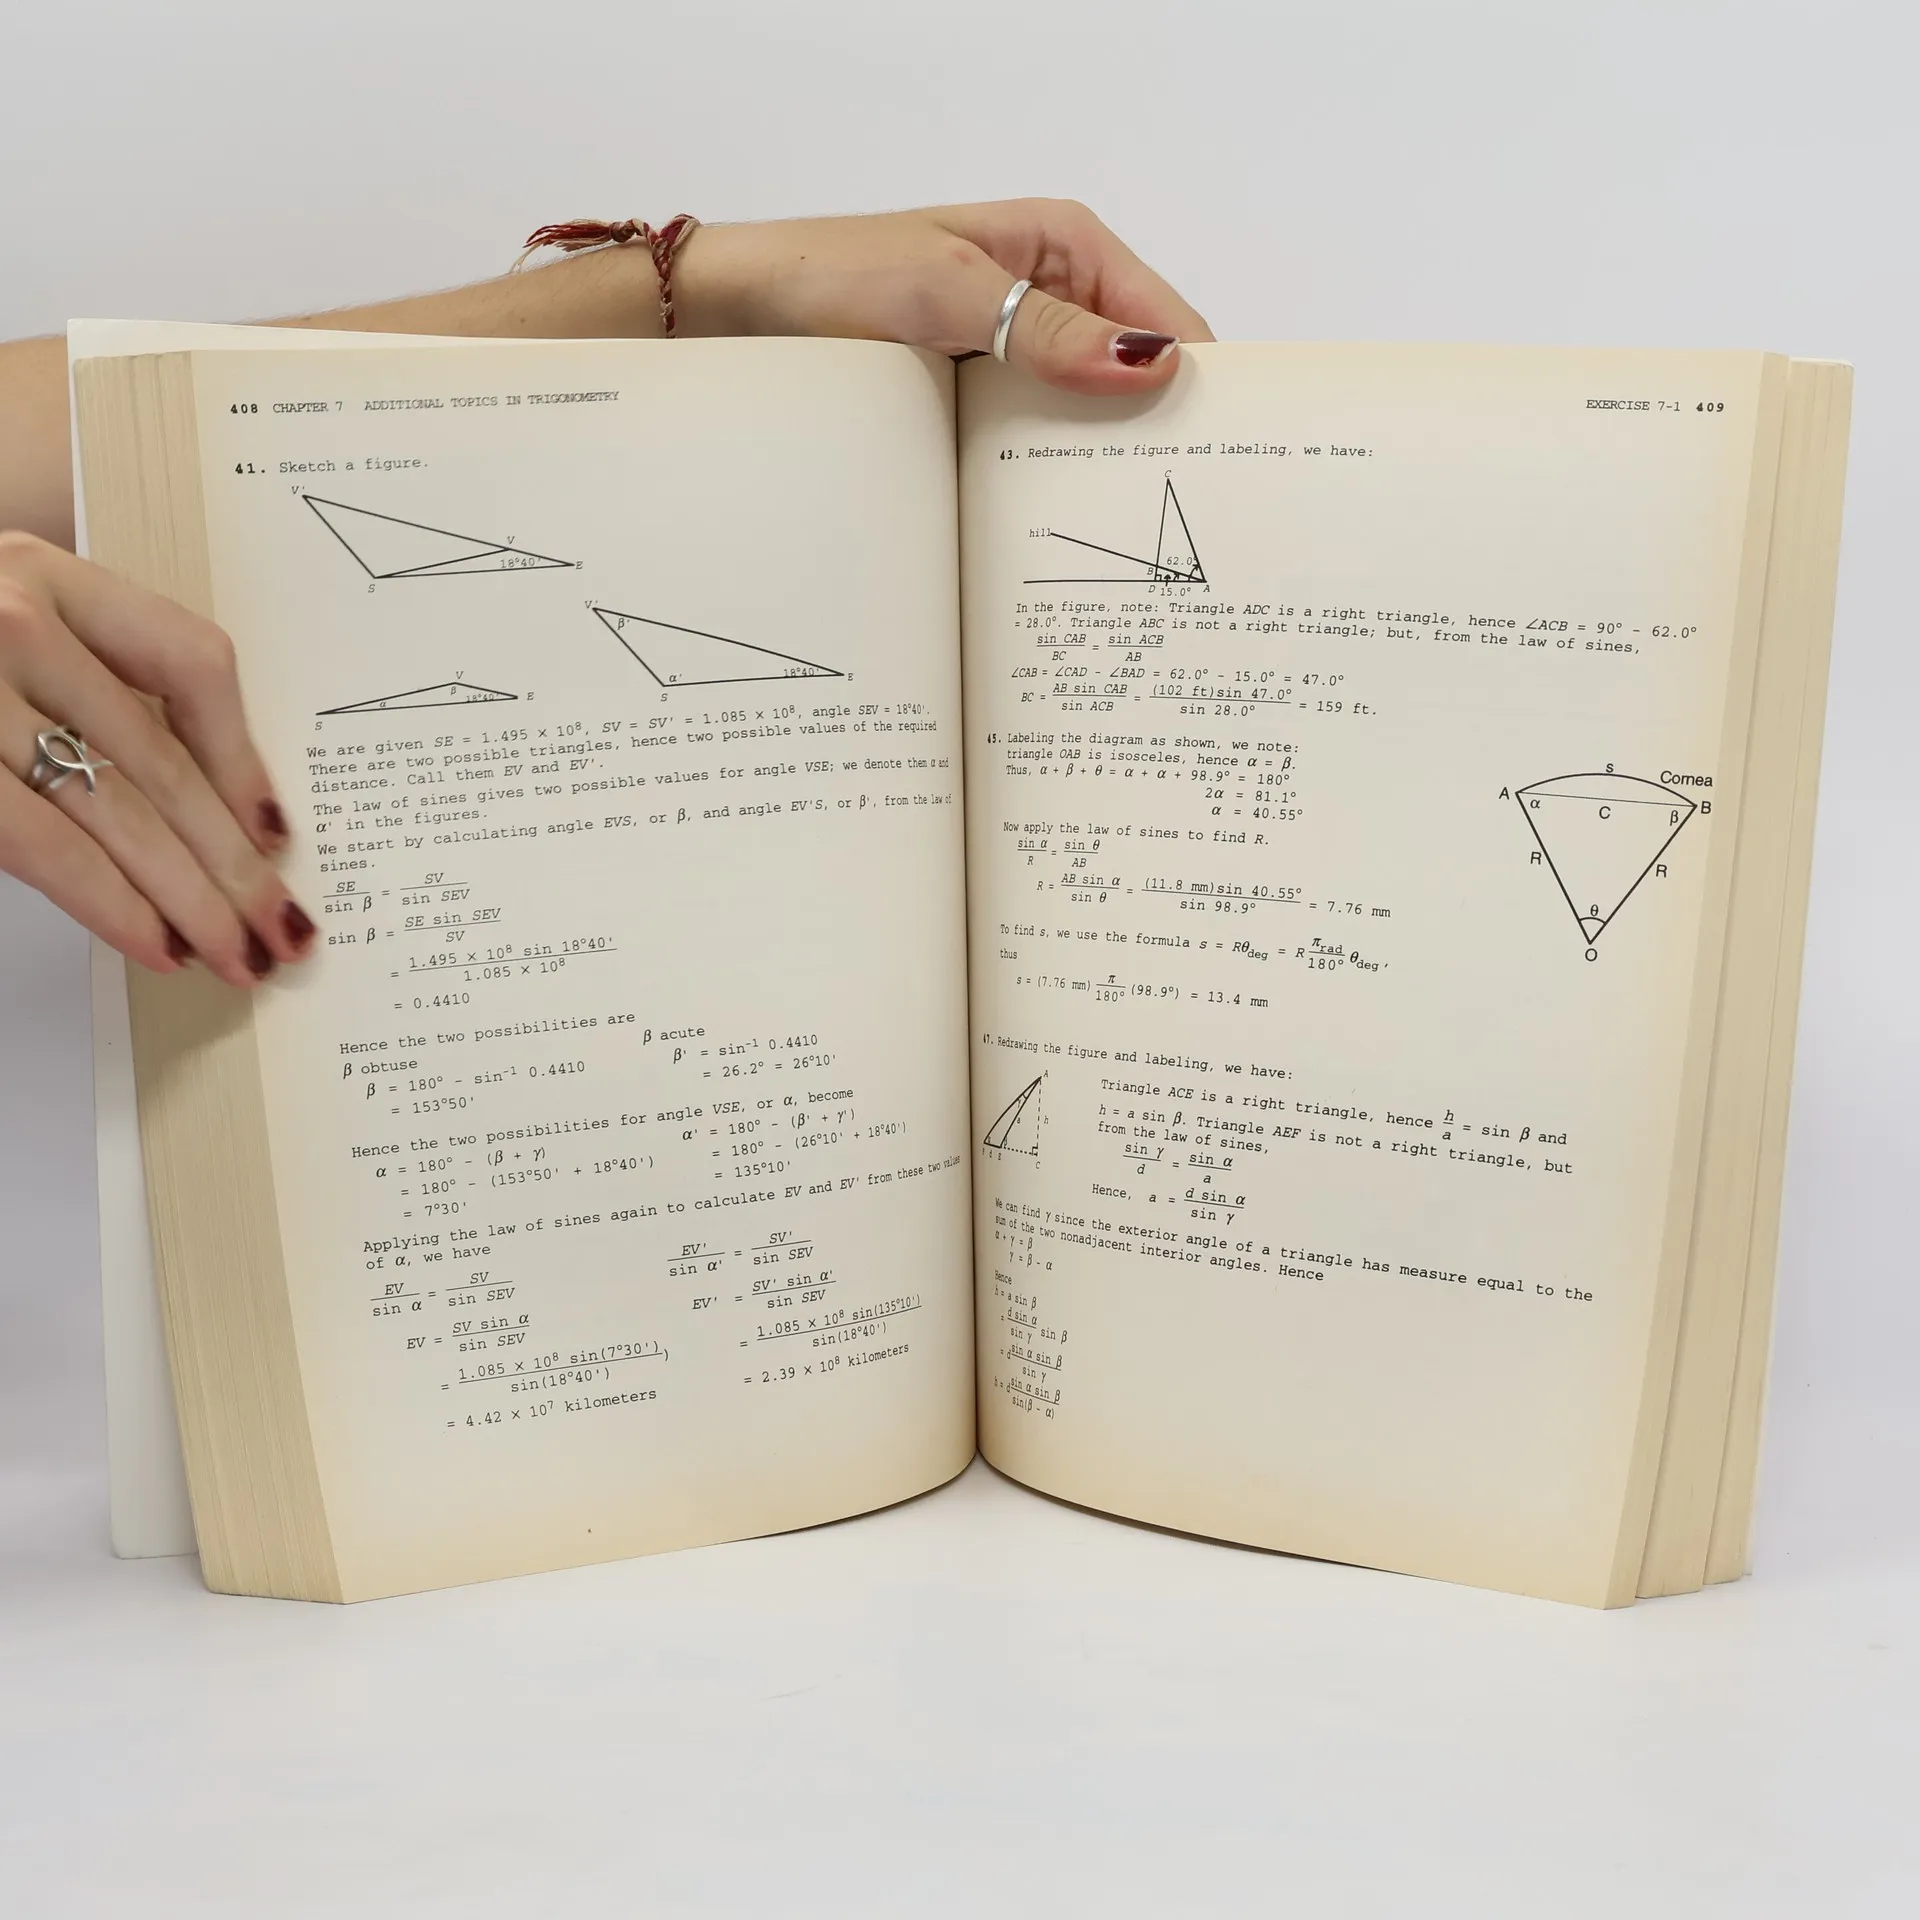 408 CHAPTER 7 ADDITIONAL TOPICS IN TRIGONOMETRY
41. Sketch a figure.
V'
V
18°40'
E
S
V'
β'
α'
18°40'
S
E
V
β
α
18°40'
E
S
We are given SE = 1.495 × 10⁸, SV = SV' = 1.085 × 10⁸, angle SEV = 18°40'.
There are two possible triangles, hence two possible values of the required
distance. Call them EV and EV'.
The law of sines gives two possible values for angle VSE; we denote them α and
α' in the figures.
We start by calculating angle EVS, or β, and angle EV'S, or β', from the law of
sines.
SE / sin β = SV / sin SEV
sin β = SE sin SEV / SV
= 1.495 × 10⁸ sin 18°40' / 1.085 × 10⁸
= 0.4410
Hence the two possibilities are
β obtuse β acute
β = 180° - sin⁻¹ 0.4410 β' = sin⁻¹ 0.4410
= 153°50' = 26.2° = 26°10'
Hence the two possibilities for angle VSE, or α, become
α = 180° - (β + γ) α' = 180° - (β' + γ')
= 180° - (153°50' + 18°40') = 180° - (26°10' + 18°40')
= 7°30' = 135°10'
Applying the law of sines again to calculate EV and EV' from these two values
of α, we have
EV / sin α = SV / sin SEV EV' / sin α' = SV' / sin SEV
EV = SV sin α / sin SEV EV' = SV' sin α' / sin SEV
= 1.085 × 10⁸ sin(7°30') / sin(18°40') ) = 1.085 × 10⁸ sin(135°10') / sin(18°40')
= 4.42 × 10⁷ kilometers = 2.39 × 10⁸ kilometers
EXERCISE 7-1 409
43. Redrawing the figure and labeling, we have:
C
hill
62.0°
B
D 15.0° A
In the figure, note: Triangle ADC is a right triangle, hence ∠ACB = 90° - 62.0°
= 28.0°. Triangle ABC is not a right triangle; but, from the law of sines,
sin CAB / BC = sin ACB / AB
∠CAB = ∠CAD - ∠BAD = 62.0° - 15.0° = 47.0°
BC = AB sin CAB / sin ACB = (102 ft)sin 47.0° / sin 28.0° = 159 ft.
45. Labeling the diagram as shown, we note:
triangle OAB is isosceles, hence α = β.
Thus, α + β + θ = α + α + 98.9° = 180°
2α = 81.1°
α = 40.55°
Now apply the law of sines to find R.
sin α / R = sin θ / AB
R = AB sin α / sin θ = (11.8 mm)sin 40.55° / sin 98.9° = 7.76 mm
To find s, we use the formula s = Rθdeg = R πrad / 180° θdeg,
thus
s = (7.76 mm) π / 180° (98.9°) = 13.4 mm
s
Cornea
A α C β B
R R
θ
O
47. Redrawing the figure and labeling, we have:
A
a
h
C
Triangle ACE is a right triangle, hence h / a = sin β and
h = a sin β. Triangle AEF is not a right triangle, but
from the law of sines,
sin γ / d = sin α / a
Hence, a = d sin α / sin γ
We can find γ since the exterior angle of a triangle has measure equal to the
sum of the two nonadjacent interior angles. Hence
α + γ = β
γ = β - α
Hence
h = a sin β
= d sin α / sin γ sin β
= d sin α sin β / sin γ
h = d sin α sin β / sin(β - α)